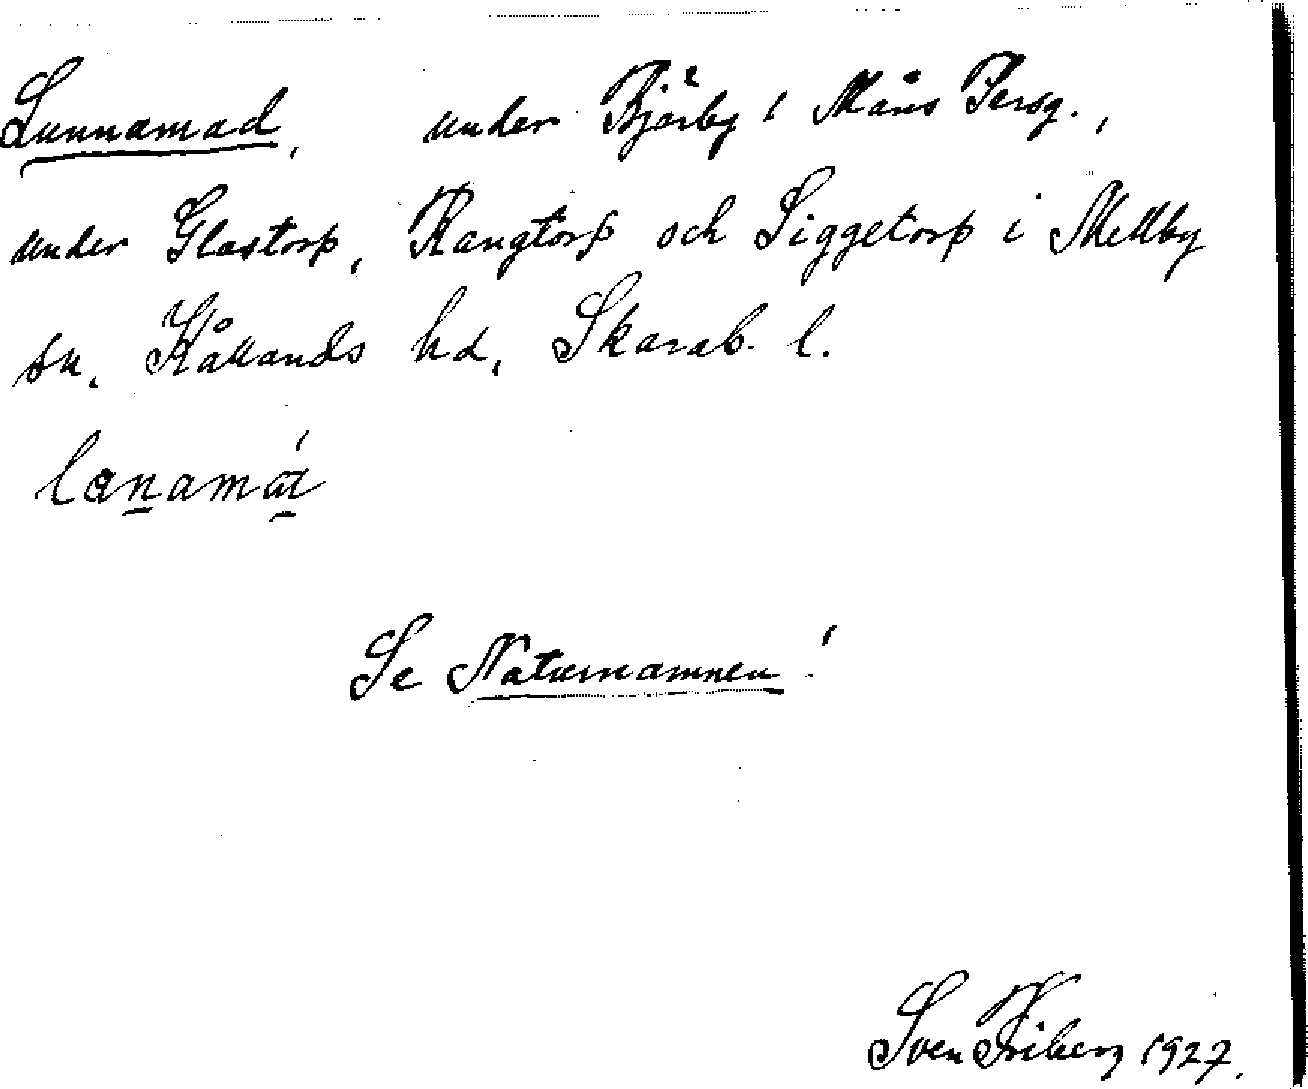 Lunnamad, under Björby 1 Måns Persg.,
under Glastorp, Rangtorp och Siggetorp i Mellby
sn, Kållands hd, Skarab. l.
Se Naturnamnen!
Sven Friberg 1927.